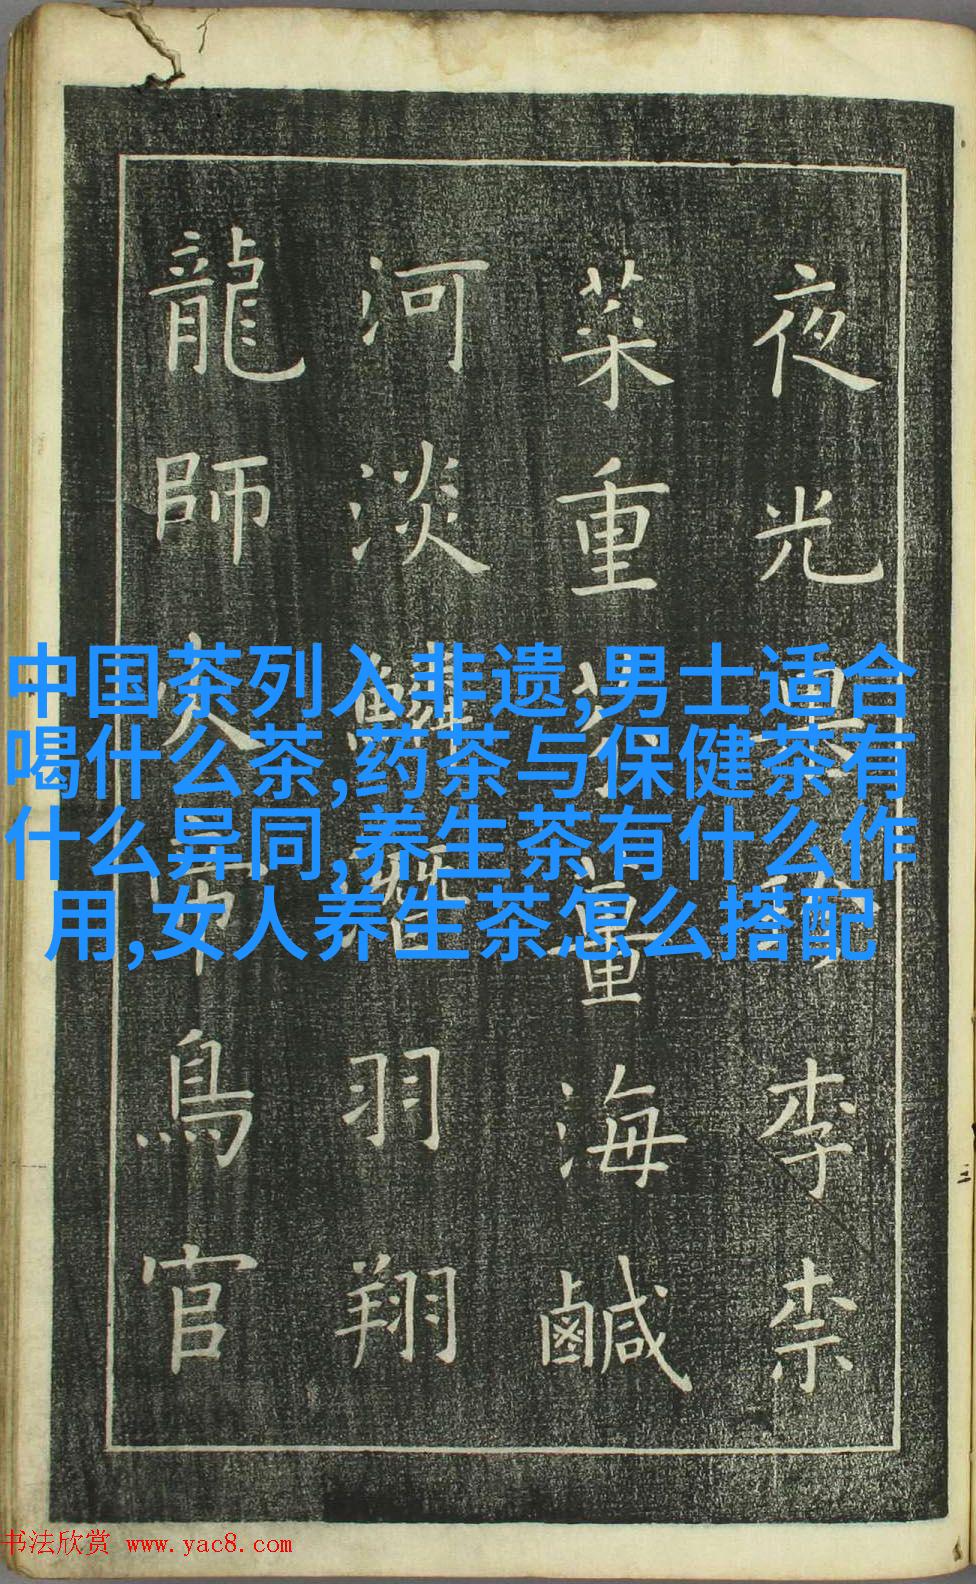 夜光果李柰
菜重芥薑海鹹
河淡鱗潛羽翔
龍師火帝鳥官
中国茶列入非遗,男士适合
喝什么茶,药茶与保健茶有
什么异同,养生茶有什么作
用,女人养生茶怎么搭配
书法欣赏 www.yac8.com